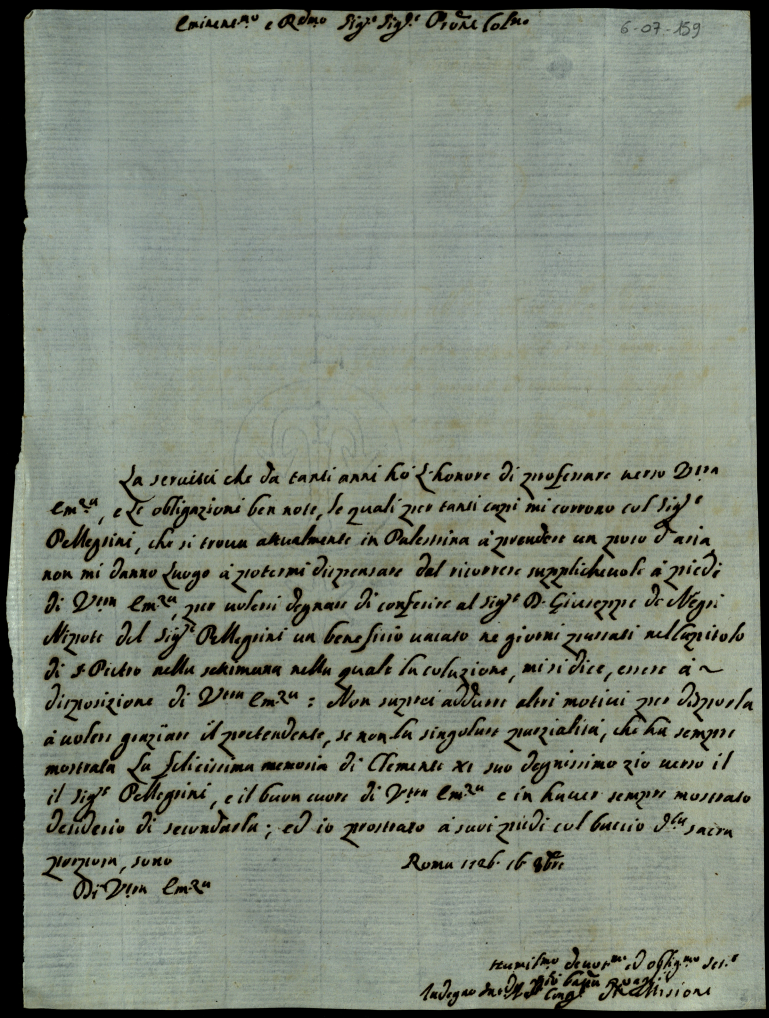 Eminen.mo e R.dmo Sig.re Sig.re P.rone Col.mo
6-07-159
La servitù che da tanti anni hò l'honore di professare verso V.tra
Em.za, e le obligazioni ben note, le quali per tanti capi mi corrono col Sig.re
Pellegrini, che si trova attualmente in Palestrina à prendere un poco d'aria
non mi danno luogo à potermi dispensare dal ricorrere supplichevole à piedi
di V.tra Em.za, per volersi degnare di conferire al Sig.re D. Giuseppe de Negri
Nipote del Sig.re Pellegrini un beneficio vacato ne giorni passati nel Capitolo
di S. Pietro nella settimana nella quale la coluzione, mi si dice, essere à
disposizione di V.tra Em.za: Non saprei addurre altri motivi per disporla
à volere graziare il pretendente, se non la singolare parzialità, che ha sempre
mostrata la felicissima memoria di Clemente XI suo degnissimo zio verso il
il Sig.re Pellegrini, e il buon cuore di V.tra Em.za e in haver sempre mostrato
desiderio di secundarla; ed io prostrato à suoi piedi col baccio d.la sacra
porpora, sono
Roma 1726. 16 8bre
Di V.tra Em.za
Humil.mo devot.mo ed oblig.mo ser.e
Indegno della Cong.e Missione